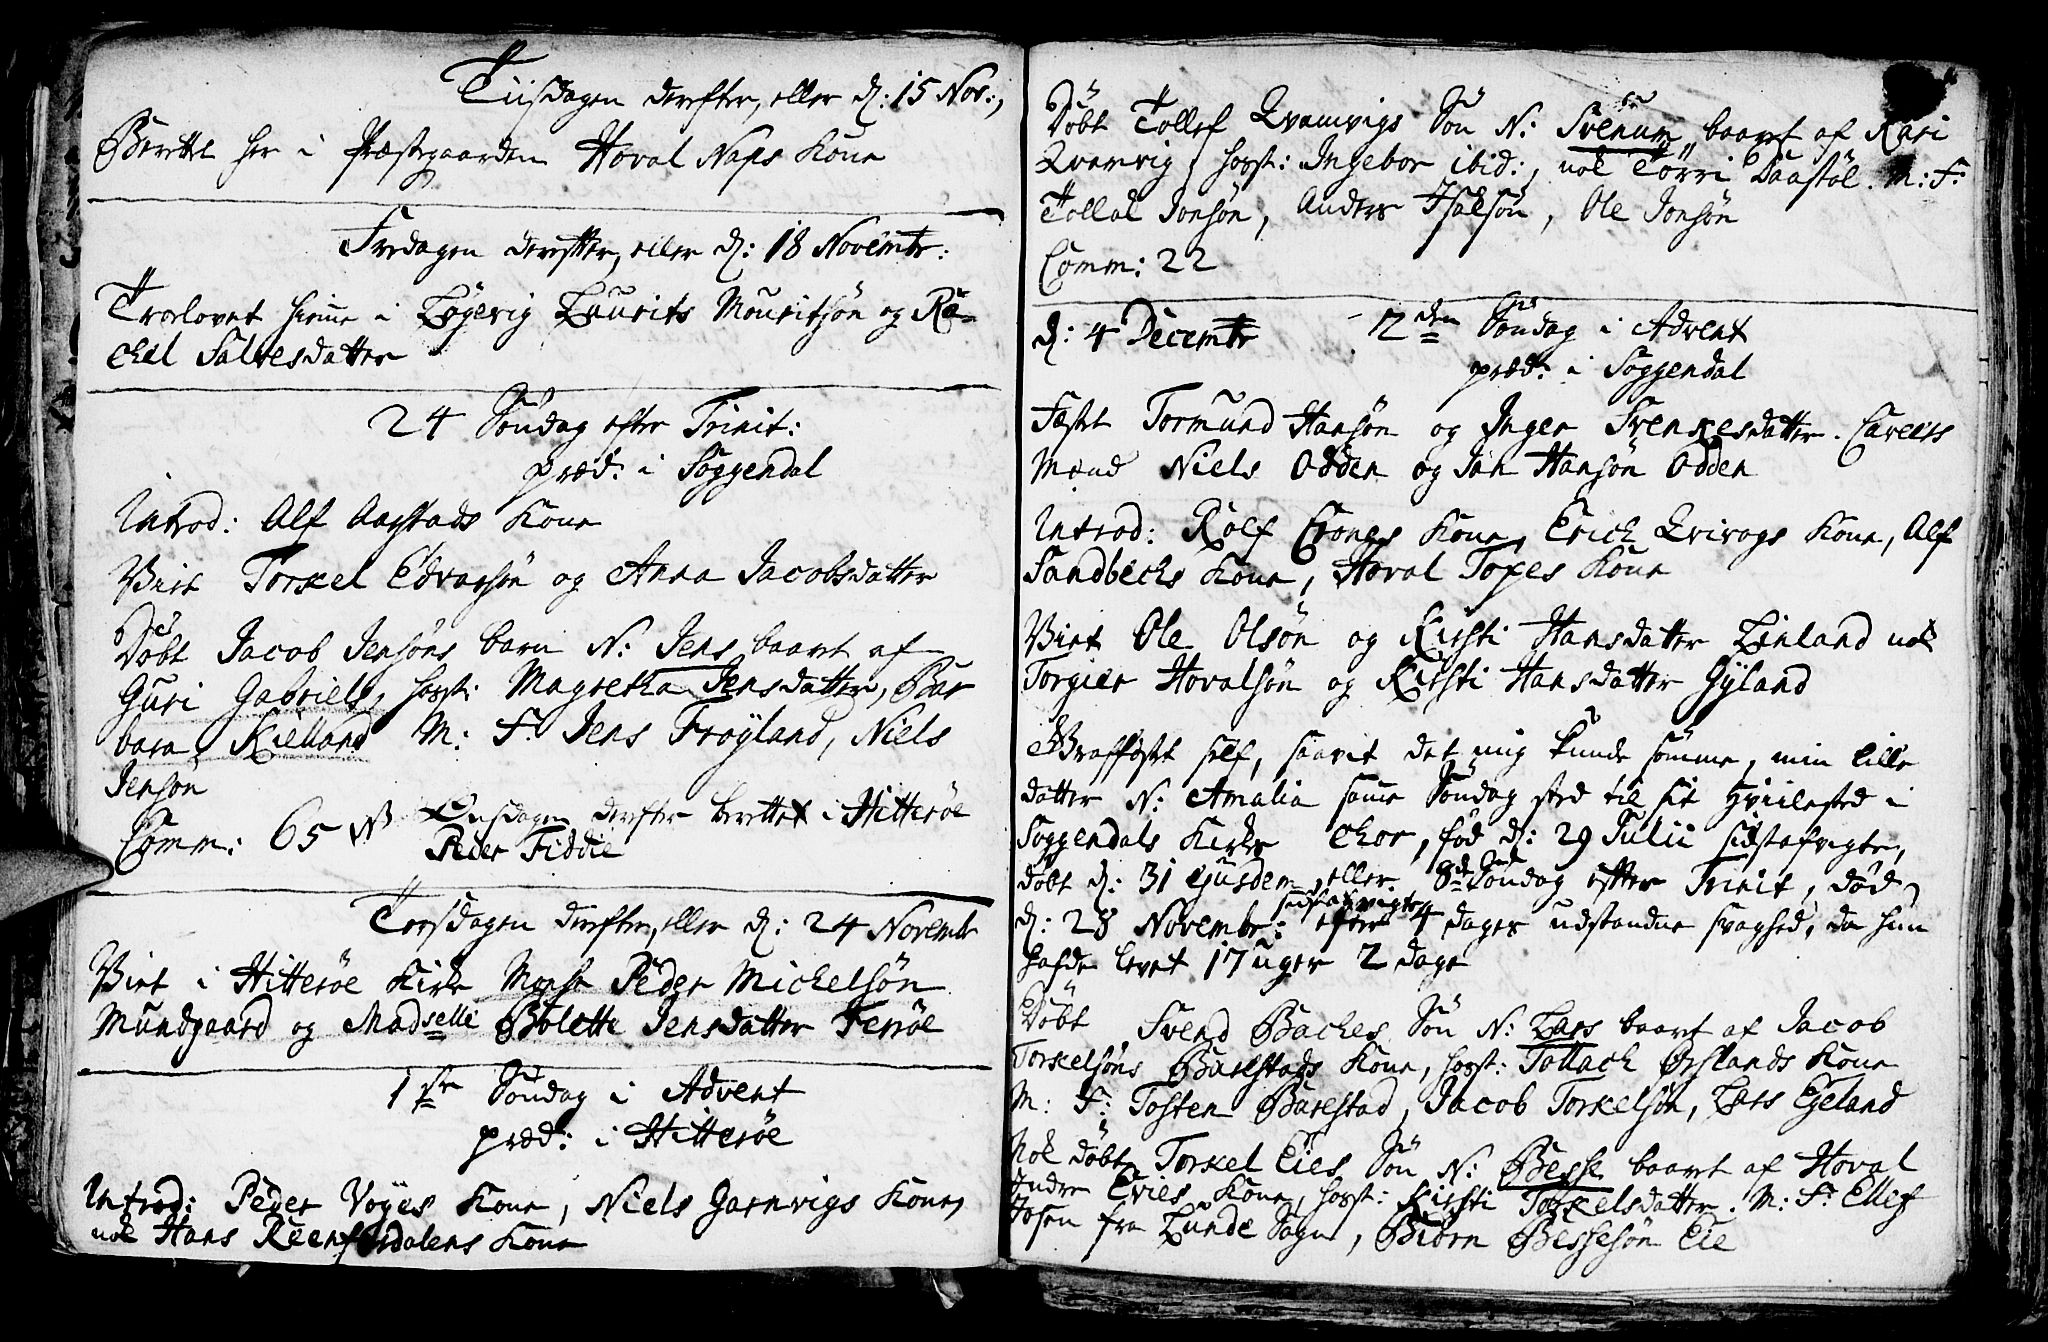 Tiisdagen derefter, eller d: 15 Nov:,
Berettet her i Præstegaarden Hoval Naps Kone
Fredagen derefter, eller d: 18 Novembr:
Trolovet hiemme i Løgevig Laurits Mouritsøn og Ra-
chel Salvesdatter
24 Søndag efter Trinit:
præd: i Soggendal
Introd: Alf Aagstads Kone
Viet Torkel Edvarsøn og Anna Jacobsdatter
Døbt Jacob Jensøns barn N: Jens baaret af
Guri Gabriels, hosst: Magretha Jensdatter, Bar
bara Kielland M: F: Jens Frøyland, Niels
Jensøn
Comm: 65 NB Onsdagen derefter berettet i Hitterøe
Peder Fiddie
Torsdagen derefter, eller d: 24 Novembr
Viet i Hitterøe Kirke Monsr Peder Michelsøn
Mundgaard og Madselle Bolette Jensdatter Ferrøe
1ste Søndag i Advent
præd: i Hitterøe
Introd: Peder Vøyes Kone, Niels Garnvigs Kone,
nok Hans Reenfierdalens Kone
Døbt Tollef Qvamvigs Søn N: Svenum, baaret af Kari
Qvamvig, hosst: Ingebor ibid:, nok Torri Daastøl. M: F:
Tollak Jonsøn, Anders Isaksøn, Ole Jonsøn
Comm: 22
d: 4 Decembr 2den Søndag i Advent
præd: i Soggendal
Fæstet Tormund Hansøn og Inger Svenkesdatter. Caveets
Mænd Niels Odden og Jan Hansøn Odden
Introd: Rolf Crones Kone, Erich Qvivogs Kone, Alf
Sandbechs Kone, Hoval Topes Kone
Viet Ole Olsøn og Kirsti Hansdatter Linland nok
Torgier Hovalsøn og Kirsti Hansdatter Gyland
Graffæstet self, saavit det mig kunde sømme, min lille
datter N: Amalia samme Søndag sted til sit Hviilested i
Soggendals Kirke chor, fød d: 29 Julii sidstafvigte,
døbt d: 31 ejusdem, eller 8de Søndag efter Trinit, død
d: 28 Novembr: sidstafvigte efter 4 dages udstandne svaghed, da hun
hafde levet 17 uger 2 dage
Døbt Svend Baches Søn N: Lars baaret af Jacob
Torkelsøns Barstads Kone, hosst: Tollach Ørslands Kone
M: F: Tosten Barestad, Jacob Torkelsøn, Lars Egeland
Nok døbt Torkel Eies Søn N: Besse baaret af Hoval
Indre Eies Kone, hosst: Kirsti Torkelsdatter. M: F: Ellef
Josen fra Lunde Sogn, Biørn Bessesøn Eie